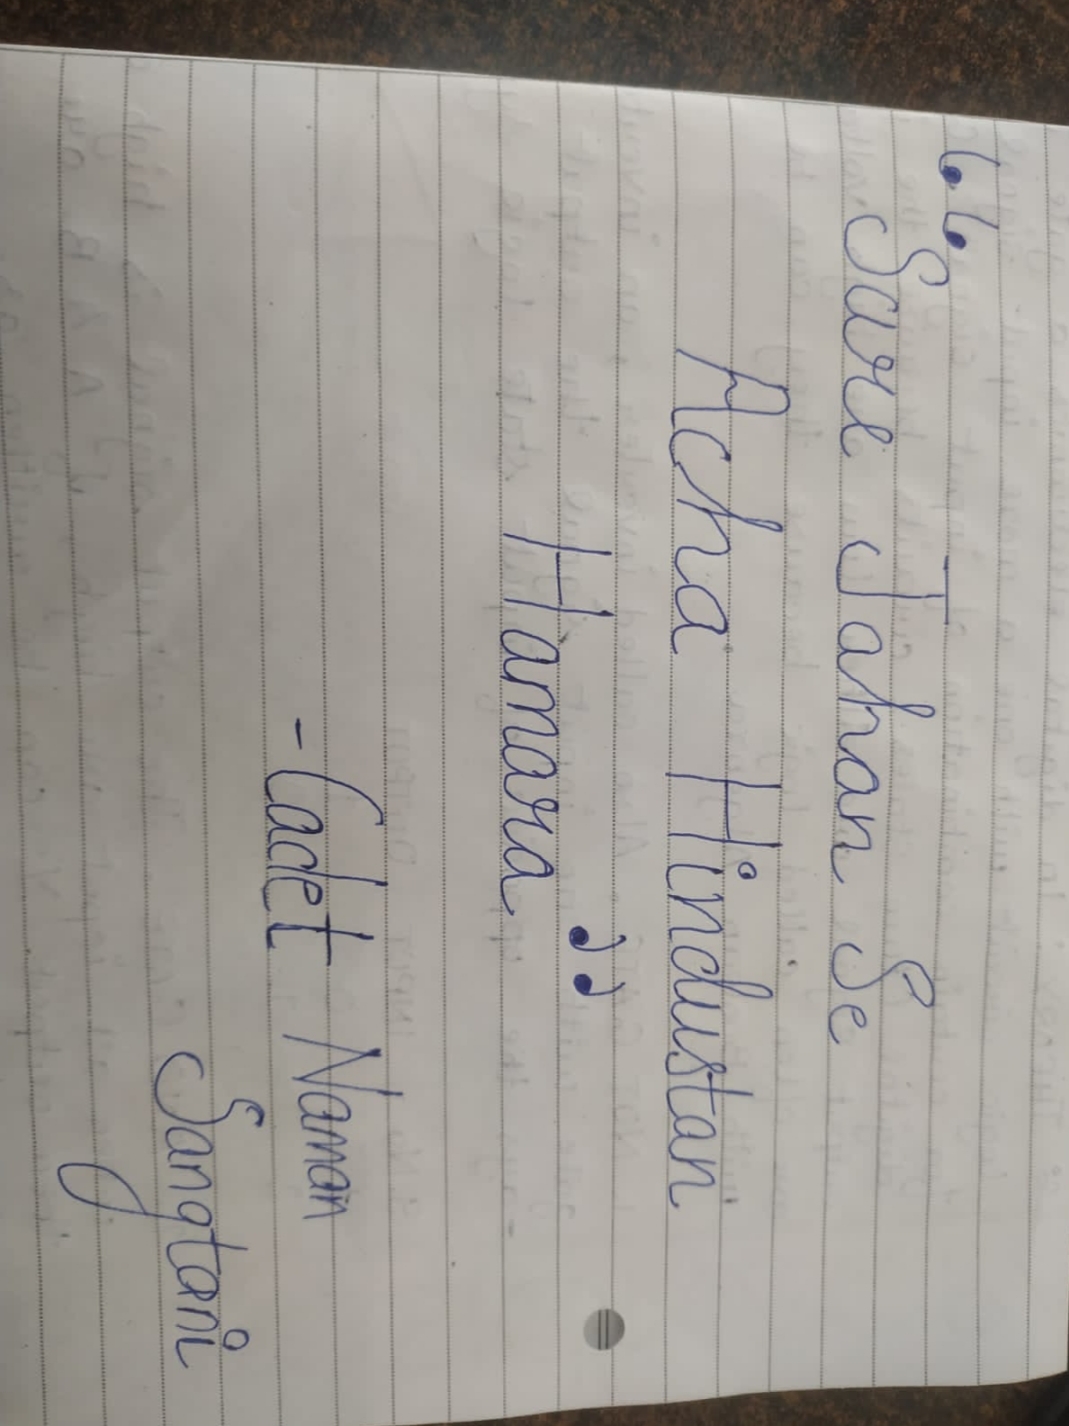 “Sare Jahan Se
Acha Hindustan
Hamara”
- Cadet Naman
Sangtani